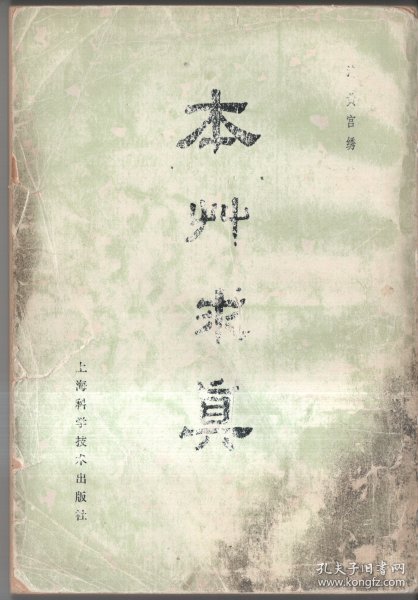 黄宫绣
本艸求真
上海科学技术出版社
孔夫子旧书网
www.kongfz.com